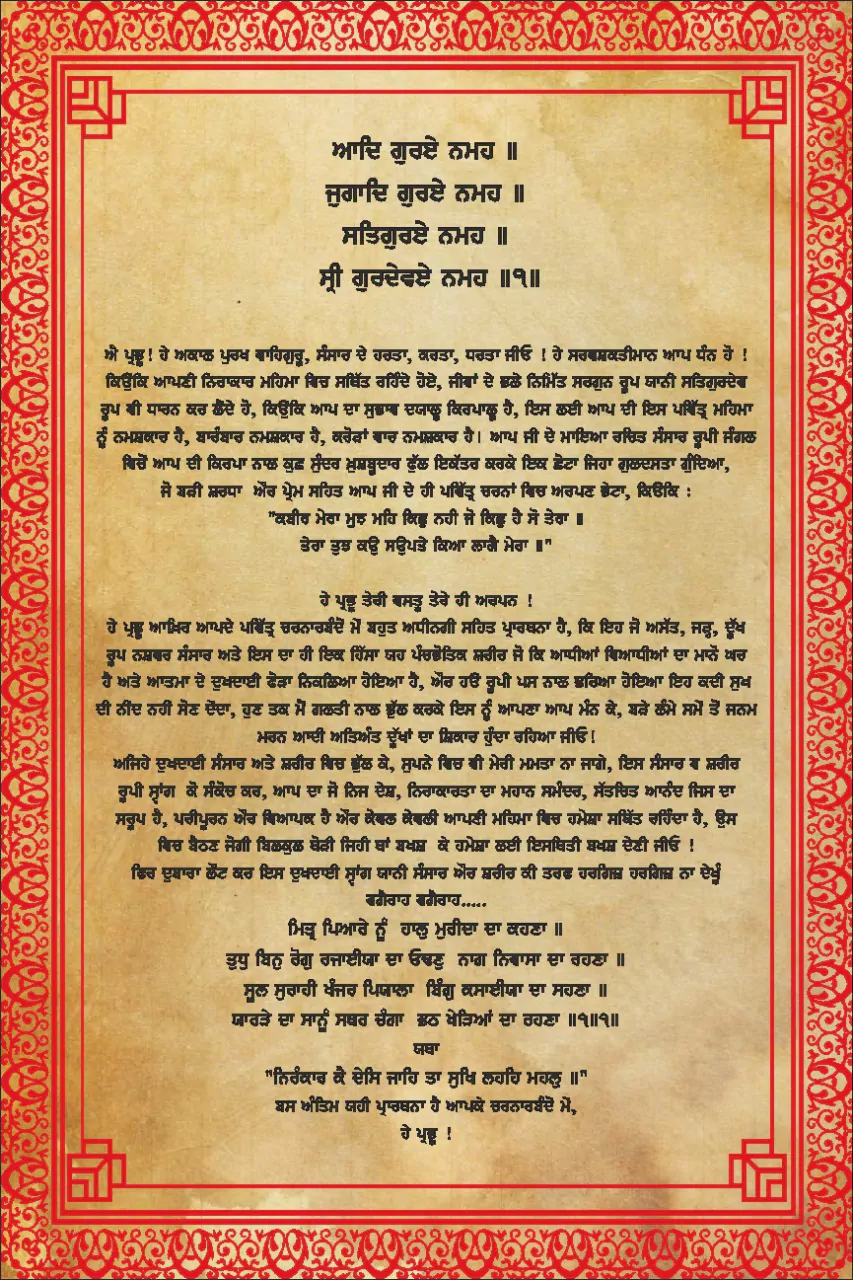 ਆਦਿ ਗੁਰਏ ਨਮਹ ॥
ਜੁਗਾਦਿ ਗੁਰਏ ਨਮਹ ॥
ਸਤਿਗੁਰਏ ਨਮਹ ॥
ਸ੍ਰੀ ਗੁਰਦੇਵਏ ਨਮਹ ॥੧॥
ਐ ਪ੍ਰਭੂ! ਹੇ ਅਕਾਲ ਪੁਰਖ ਵਾਹਿਗੁਰੂ, ਸੰਸਾਰ ਦੇ ਹਰਤਾ, ਕਰਤਾ, ਧਰਤਾ ਜੀਓ ! ਹੇ ਸਰਵਸ਼ਕਤੀਮਾਨ ਆਪ ਧੰਨ ਹੋ !
ਕਿਉਂਕਿ ਆਪਣੀ ਨਿਰਾਕਾਰ ਮਹਿਮਾ ਵਿਚ ਸਥਿੱਤ ਰਹਿੰਦੇ ਹੋਏ, ਜੀਵਾਂ ਦੇ ਭਲੇ ਨਿਮਿੱਤ ਸਰਗੁਨ ਰੂਪ ਯਾਨੀ ਸਤਿਗੁਰਦੇਵ
ਰੂਪ ਵੀ ਧਾਰਨ ਕਰ ਲੈਂਦੇ ਹੋ, ਕਿਉਂਕਿ ਆਪ ਦਾ ਸੁਭਾਵ ਦਯਾਲੂ ਕਿਰਪਾਲੂ ਹੈ, ਇਸ ਲਈ ਆਪ ਦੀ ਇਸ ਪਵਿੱਤ੍ਰ ਮਹਿਮਾ
ਨੂੰ ਨਮਸ਼ਕਾਰ ਹੈ, ਬਾਰੰਬਾਰ ਨਮਸ਼ਕਾਰ ਹੈ, ਕਰੋੜਾਂ ਵਾਰ ਨਮਸ਼ਕਾਰ ਹੈ। ਆਪ ਜੀ ਦੇ ਮਾਇਆ ਰਚਿਤ ਸੰਸਾਰ ਰੂਪੀ ਜੰਗਲ
ਵਿਚੋਂ ਆਪ ਦੀ ਕਿਰਪਾ ਨਾਲ ਕੁਛ ਸੁੰਦਰ ਖੁਸ਼ਬੂਦਾਰ ਫੁੱਲ ਇਕੱਤਰ ਕਰਕੇ ਇਕ ਛੋਟਾ ਜਿਹਾ ਗੁਲਦਸਤਾ ਗੁੰਦਿਆ,
ਜੋ ਬੜੀ ਸ਼ਰਧਾ ਔਰ ਪ੍ਰੇਮ ਸਹਿਤ ਆਪ ਜੀ ਦੇ ਹੀ ਪਵਿੱਤ੍ਰ ਚਰਨਾਂ ਵਿਚ ਅਰਪਣ ਭੇਟਾ, ਕਿਓਕਿ :
"ਕਬੀਰ ਮੇਰਾ ਮੁਝ ਮਹਿ ਕਿਛੁ ਨਹੀ ਜੋ ਕਿਛੁ ਹੈ ਸੋ ਤੇਰਾ ॥
ਤੇਰਾ ਤੁਝ ਕਉ ਸਉਪਤੇ ਕਿਆ ਲਾਗੈ ਮੇਰਾ ॥"
ਹੇ ਪ੍ਰਭੂ ਤੇਰੀ ਵਸਤੂ ਤੇਰੇ ਹੀ ਅਰਪਨ !
ਹੇ ਪ੍ਰਭੂ ਆਖ਼ਿਰ ਆਪਦੇ ਪਵਿੱਤ੍ਰ ਚਰਨਾਰਬੰਦੋਂ ਮੇਂ ਬਹੁਤ ਅਧੀਨਗੀ ਸਹਿਤ ਪ੍ਰਾਰਥਨਾ ਹੈ, ਕਿ ਇਹ ਜੋ ਅਸੱਤ, ਜੜ੍ਹ, ਦੁੱਖ
ਰੂਪ ਨਸ਼ਵਰ ਸੰਸਾਰ ਅਤੇ ਇਸ ਦਾ ਹੀ ਇਕ ਹਿੱਸਾ ਯਹ ਪੰਚਭੋਤਿਕ ਸ਼ਰੀਰ ਜੋ ਕਿ ਆਧੀਆਂ ਵਿਆਧੀਆਂ ਦਾ ਮਾਨੋ ਘਰ
ਹੈ ਅਤੇ ਆਤਮਾ ਦੇ ਦੁਖਦਾਈ ਫੋੜਾ ਨਿਕਲਿਆ ਹੋਇਆ ਹੈ, ਔਰ ਹਉਂ ਰੂਪੀ ਪਸ ਨਾਲ ਭਰਿਆ ਹੋਇਆ ਇਹ ਕਦੀ ਸੁਖ
ਦੀ ਨੀਂਦ ਨਹੀਂ ਸੋਣ ਦੇਂਦਾ, ਹੁਣ ਤਕ ਮੈਂ ਗਲਤੀ ਨਾਲ ਭੁੱਲ ਕਰਕੇ ਇਸ ਨੂੰ ਆਪਣਾ ਆਪ ਮੰਨ ਕੇ, ਬੜੇ ਲੰਮੇ ਸਮੇਂ ਤੋਂ ਜਨਮ
ਮਰਨ ਆਦੀ ਅਤਿਅੰਤ ਦੁੱਖਾਂ ਦਾ ਸ਼ਿਕਾਰ ਹੁੰਦਾ ਰਹਿਆ ਜੀਓ!
ਅਜਿਹੇ ਦੁਖਦਾਈ ਸੰਸਾਰ ਅਤੇ ਸ਼ਰੀਰ ਵਿਚ ਭੁੱਲ ਕੇ, ਸੁਪਨੇ ਵਿਚ ਵੀ ਮੇਰੀ ਮਮਤਾ ਨਾ ਜਾਗੇ, ਇਸ ਸੰਸਾਰ ਵ ਸ਼ਰੀਰ
ਰੂਪੀ ਸ੍ਵਾਂਗ ਕੋ ਸੰਕੋਚ ਕਰ, ਆਪ ਦਾ ਜੋ ਨਿਜ ਦੇਸ਼, ਨਿਰਾਕਾਰਤਾ ਦਾ ਮਹਾਨ ਸਮੰਦਰ, ਸੱਤਚਿਤ ਆਨੰਦ ਜਿਸ ਦਾ
ਸਰੂਪ ਹੈ, ਪਰੀਪੂਰਨ ਔਰ ਵਿਆਪਕ ਹੈ ਔਰ ਕੇਵਲ ਕੇਵਲੀ ਆਪਣੀ ਮਹਿਮਾ ਵਿਚ ਹਮੇਸ਼ਾ ਸਥਿੱਤ ਰਹਿੰਦਾ ਹੈ, ਉਸ
ਵਿਚ ਬੈਠਣ ਜੋਗੀ ਬਿਲਕੁਲ ਥੋੜੀ ਜਿਹੀ ਥਾਂ ਬਖਸ਼ ਕੇ ਹਮੇਸ਼ਾ ਲਈ ਇਸਥਿਤੀ ਬਖਸ਼ ਦੇਣੀ ਜੀਓ !
ਫਿਰ ਦੁਬਾਰਾ ਲੌਟ ਕਰ ਇਸ ਦੁਖਦਾਈ ਸ੍ਵਾਂਗ ਯਾਨੀ ਸੰਸਾਰ ਔਰ ਸ਼ਰੀਰ ਕੀ ਤਰਫ ਹਰਗਿਜ਼ ਹਰਗਿਜ਼ ਨਾ ਦੇਖੂੰ
ਵਗੈਰਾਹ ਵਗੈਰਾਹ.....
ਮਿਤ੍ਰ ਪਿਆਰੇ ਨੂੰ ਹਾਲੁ ਮੁਰੀਦਾ ਦਾ ਕਹਣਾ ॥
ਤੁਧੁ ਬਿਨੁ ਰੋਗੁ ਰਜਾਈਯਾ ਦਾ ਓਢਣੁ ਨਾਗ ਨਿਵਾਸਾ ਦਾ ਰਹਣਾ ॥
ਸੂਲ ਸੁਰਾਹੀ ਖੰਜਰ ਪਿਯਾਲਾ ਬਿੰਗੁ ਕਸਾਈਯਾ ਦਾ ਸਹਣਾ ॥
ਯਾਰੜੇ ਦਾ ਸਾਨੂੰ ਸਥਰ ਚੰਗਾ ਭਠ ਖੇੜਿਆਂ ਦਾ ਰਹਣਾ ॥੧॥੧॥
ਯਥਾ
"ਨਿਰੰਕਾਰ ਕੈ ਦੇਸਿ ਜਾਹਿ ਤਾ ਸੁਖਿ ਲਹਹਿ ਮਹਲੁ ॥"
ਬਸ ਅੰਤਿਮ ਯਹੀ ਪ੍ਰਾਰਥਨਾ ਹੈ ਆਪਕੇ ਚਰਨਾਰਬੰਦੋਂ ਮੇਂ,
ਹੇ ਪ੍ਰਭੂ !